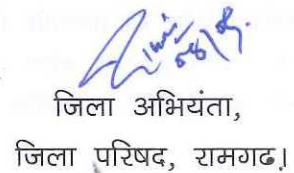 08/08
जिला अभियंता,
जिला परिषद, रामगढ।